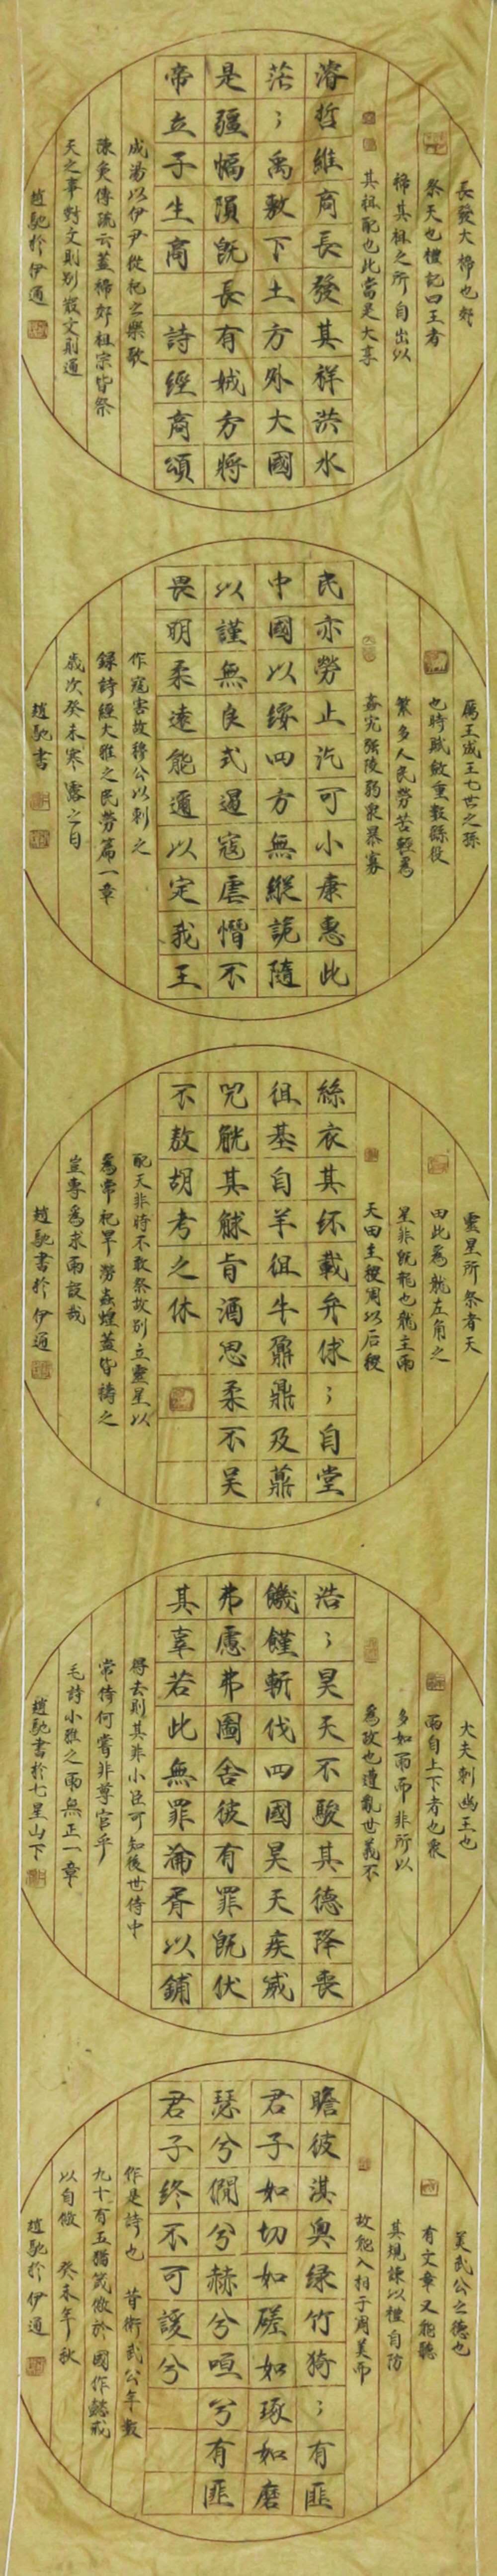 長發大禘也郊
祭天也禮記曰王者
禘其祖之所自出以
其祖配也此當是大享
濬哲維商長發其祥洪水
茫；禹敷下土方外大國
是疆幅隕既長有娀方將
帝立子生商　詩經商頌
成湯以伊尹從祀之樂歌
陳奐傳疏云蓋禘郊祖宗皆祭
天之事對文則別散文則通
趙馳於伊通
厲王成王七世之孫
也時賦斂重數繇役
繁多人民勞苦輕為
姦宄強陵弱眾暴寡
民亦勞止汔可小康惠此
中國以綏四方無縱詭隨
以謹無良式遏寇虐憯不
畏明柔遠能邇以定我王
作寇害故穆公以刺之
錄詩經大雅之民勞篇一章
歲次癸未寒露之日
趙馳書
靈星所祭者天
田此為龍左角之
星非既龍也龍主雨
天田主稷周以后稷
絲衣其紑載弁俅；自堂
徂基自羊徂牛鼐鼎及鼒
兕觥其觩旨酒思柔不吳
不敖胡考之休
配天非時不敢祭故別立靈星以
為常祀旱澇蟲蝗蓋皆禱之
豈專為求雨設哉
趙馳書於伊通
大夫刺幽王也
雨自上下者也眾
多如雨而非所以
為政也遭亂世義不
浩；昊天不駿其德降喪
饑饉斬伐四國昊天疾威
弗慮弗圖舍彼有罪既伏
其辜若此無罪淪胥以鋪
得去則其非小臣可知後世侍中
常侍何嘗非尊官乎
毛詩小雅之雨無正一章
趙馳書於七星山下
美武公之德也
有文章又能聽
其規諫以禮自防
故能入相于周美而
瞻彼淇奧綠竹猗；有匪
君子如切如磋如琢如磨
瑟兮僩兮赫兮咺兮有匪
君子終不可諼兮
作是詩也　昔衛武公年數
九十有五猶箴儆於國作懿戒
以自儆　癸未年秋
趙馳於伊通